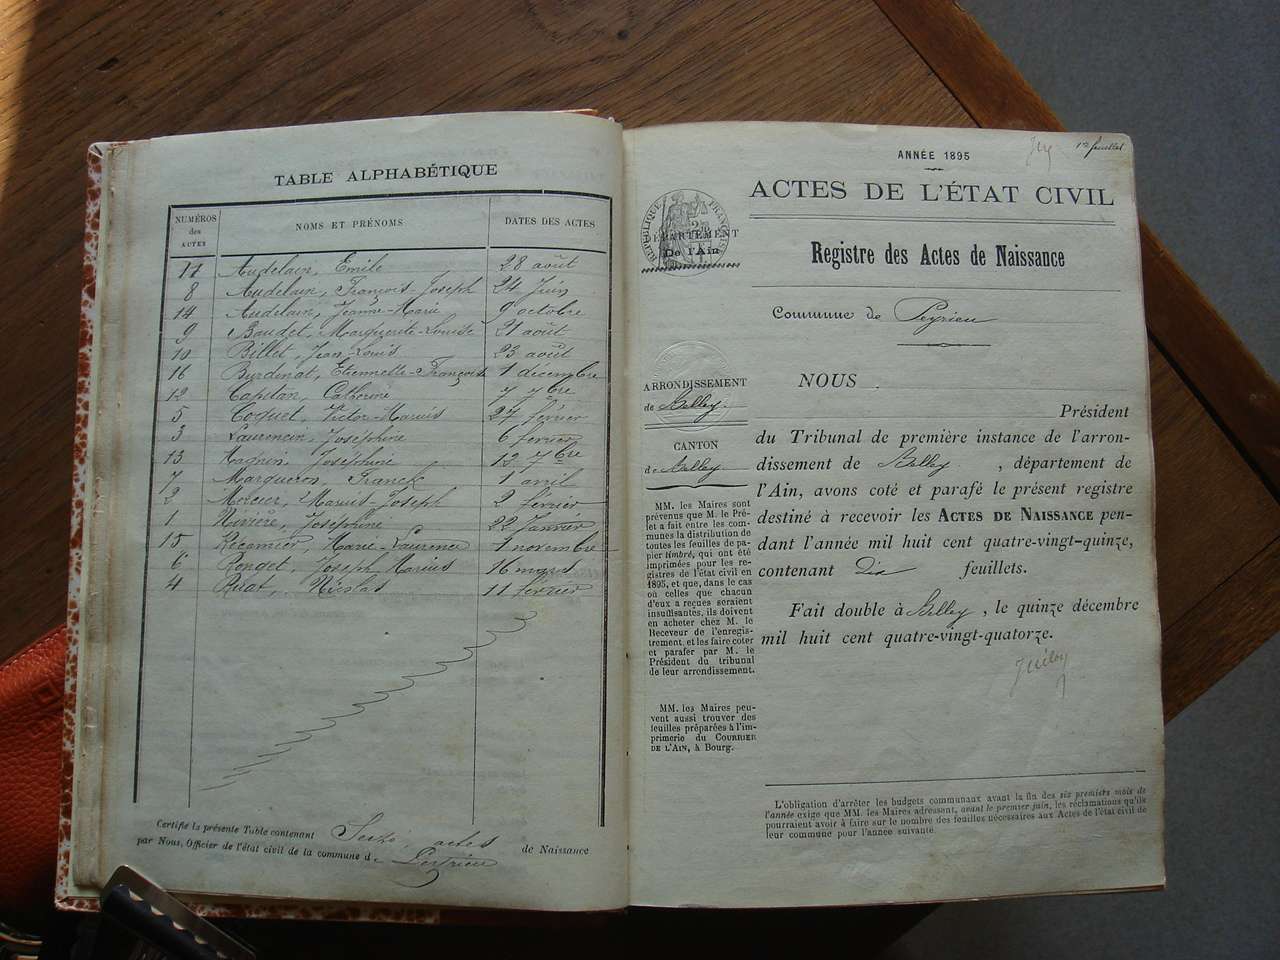 TABLE ALPHABÉTIQUE
NUMÉROS des ACTES NOMS ET PRÉNOMS DATES DES ACTES
11 Audelain, Emile 28 août
8 Audelain, François-Joseph 24 Juin
14 Audelain, Jeanne-Marie 9 octobre
9 Baudet, Marguerite-Louise 21 août
10 Billet, Jean-Louis 23 août
16 Burdinat, Etiennette-Françoise 1 decembre
12 Capitan, Catherine 7 7bre
5 Coquet, Victor-Marius 27 février
3 Laurencin, Joséphine 6 février
13 Magnin, Joséphine 12 7bre
7 Margueron, Franck 1 avril
2 Mercier, Marius-Joseph 2 février
1 Rivière, Joséphine 22 Janvier
15 Récamier, Marie-Laurence 1 novembre
6 Ronget, Joseph Marius 16 mars
4 Ruat, Nicolas 11 février
Certifié la présente Table contenant Seize actes de Naissance
par Nous, Officier de l'état civil de la commune de Peyrieu
12 feuillet
ANNÉE 1895
ACTES DE L'ÉTAT CIVIL
RÉPUBLIQUE FRANÇAISE
DÉPARTEMENT
De l'Ain
Registre des Actes de Naissance
Commune de Peyrieu
ARRONDISSEMENT
de Belley
CANTON
de Belley
MM. les Maires sont
prévenus que M. le Pré-
fet a fait entre les com-
munes la distribution de
toutes les feuilles de pa-
pier timbré, qui ont été
imprimées pour les re-
gistres de l'état civil en
1895, et que, dans le cas
où celles que chacun
d'eux a reçues seraient
insuffisantes, ils doivent
en acheter chez M. le
Receveur de l'enregis-
trement, et les faire coter
et parafer par M. le
Président du tribunal
de leur arrondissement.
MM. les Maires peu-
vent aussi trouver des
feuilles préparées à l'im-
primerie du COURRIER
DE L'AIN, à Bourg.
NOUS
Président
du Tribunal de première instance de l'arron-
dissement de Belley, département de
l'Ain, avons coté et parafé le présent registre
destiné à recevoir les ACTES DE NAISSANCE pen-
dant l'année mil huit cent quatre-vingt-quinze,
contenant Dix feuillets.
Fait double à Belley, le quinze décembre
mil huit cent quatre-vingt-quatorze.
L'obligation d'arrêter les budgets communaux avant la fin des six premiers mois de
l'année exige que MM. les Maires adressent, avant le premier juin, les réclamations qu'ils
pourraient avoir à faire sur le nombre des feuilles nécessaires aux Actes de l'état civil de
leur commune pour l'année suivante.